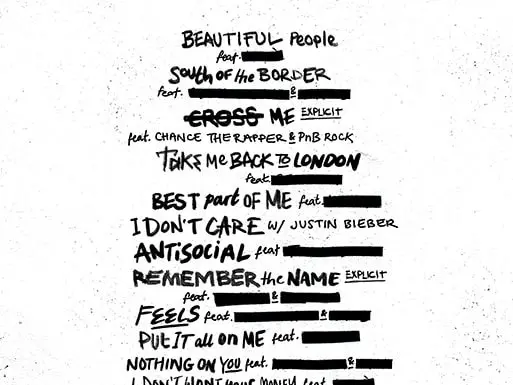 BEAUTIFUL People
feat.
South OF the BORDER
feat. &
CROSS ME EXPLICIT
feat. CHANCE THE RAPPER & PnB ROCK
TAKE Me BACK To LONDON
feat.
BEST part OF ME feat.
I DON'T CARE w/ JUSTIN BIEBER
ANTiSOCIAL feat
REMEMBER the NAME EXPLICIT
feat. &
FEELS feat. &
PUT IT all on ME feat.
NOTHING ON YOU feat. &
I DON'T WANT YOUR MONEY feat.